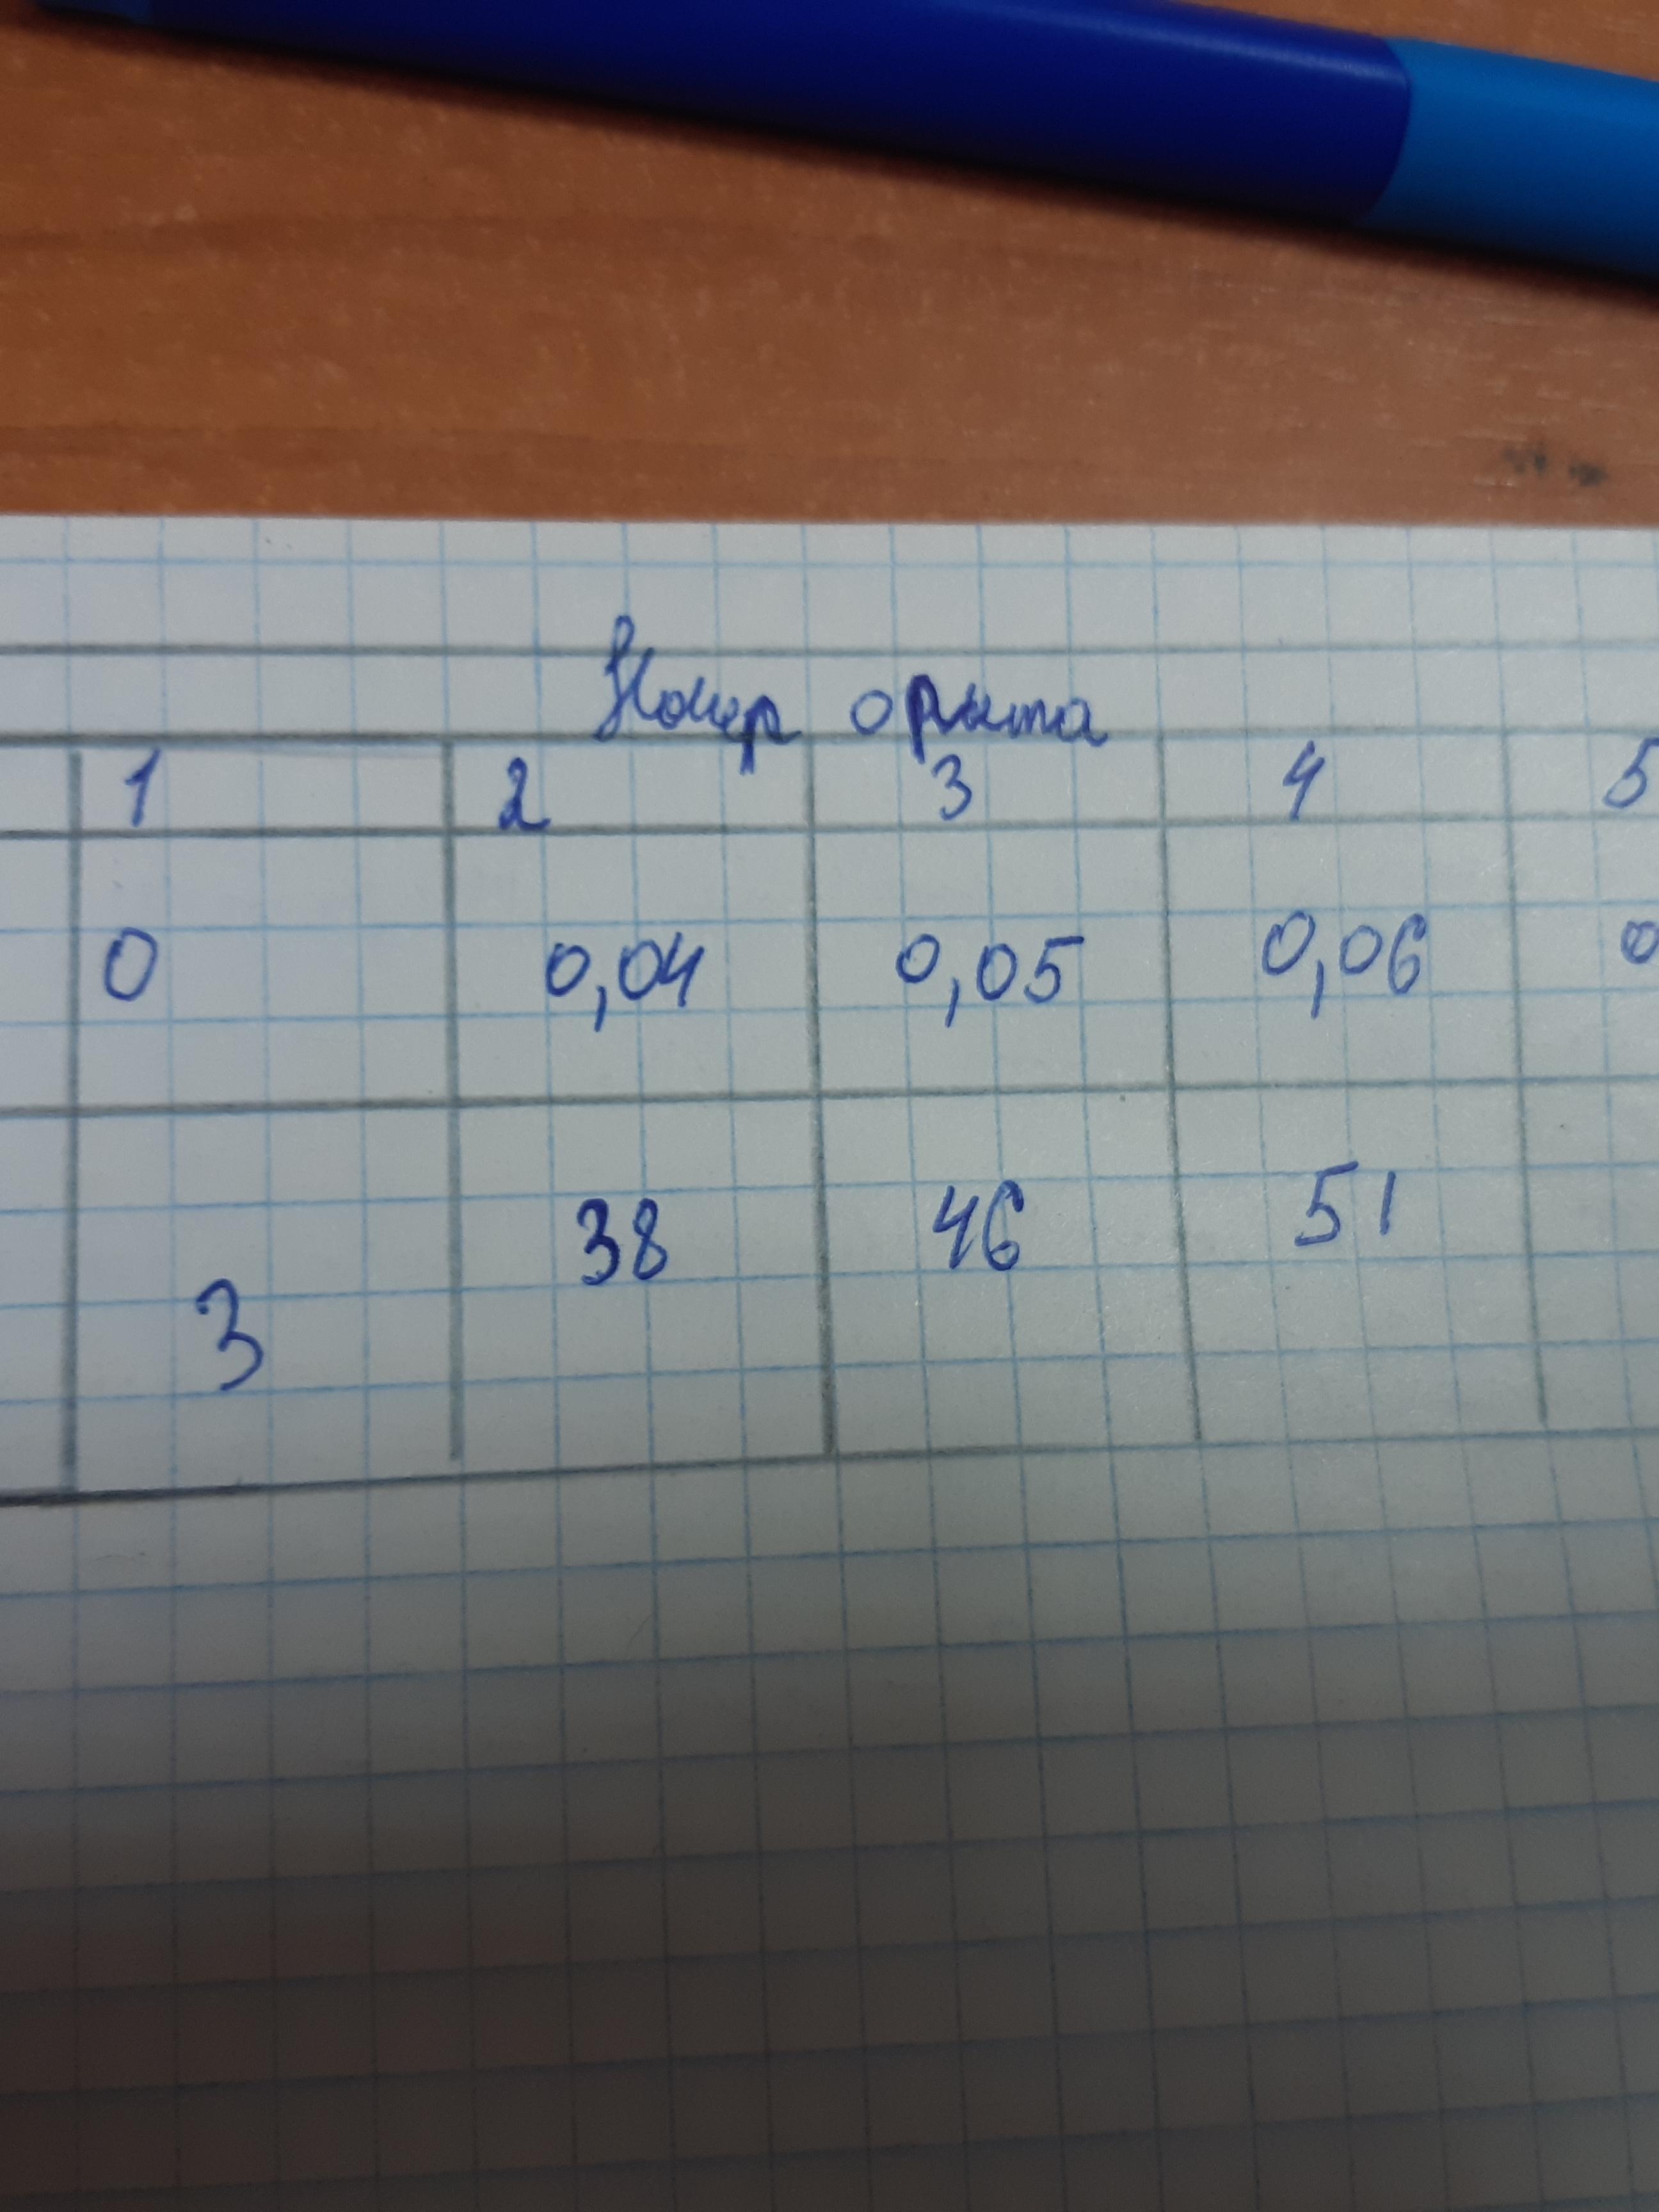 Номер опыта
1 2 3 4 5
0 0,04 0,05 0,06 0
3 38 46 51